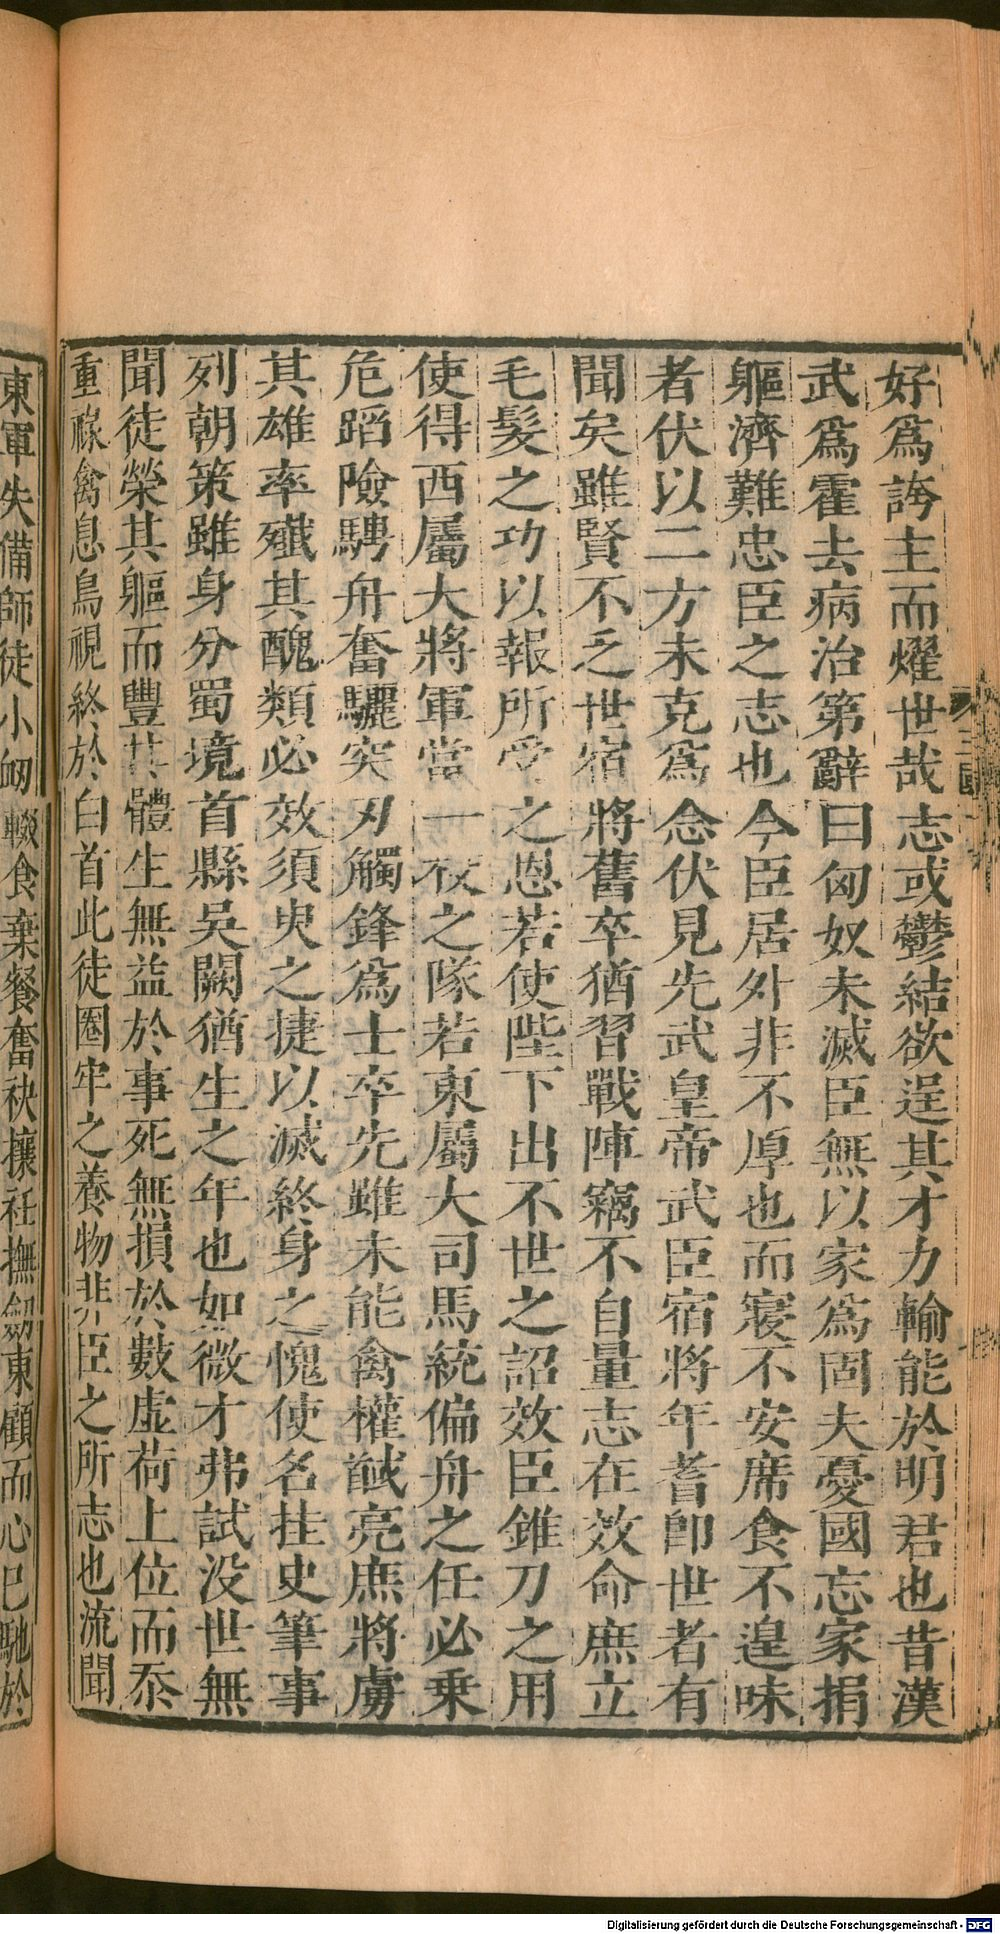 好爲誇主而燿世哉志或鬱結欲逞其才力輸能於明君也昔漢
武爲霍去病治第辭曰匈奴未滅臣無以家爲固夫憂國忘家捐
軀濟難忠臣之志也今臣居外非不厚也而寢不安席食不遑味
者伏以二方未克爲念伏見先武皇帝武臣宿將年耆即世者有
聞矣雖賢不乏世宿將舊卒猶習戰陣竊不自量志在效命庶立
毛髮之功以報所受之恩若使陛下出不世之詔效臣錐刀之用
使得西屬大將軍當一校之隊若東屬大司馬統偏舟之任必乗
危蹈險騁舟奮驪突刃觸鋒爲士卒先雖未能禽權馘亮庶將虜
其雄率殱其醜類必效須臾之捷以滅終身之愧使名挂史筆事
列朝策雖身分蜀境首縣吳闕猶生之年也如微才弗試没世無
聞徒榮其軀而豐其體生無益於事死無損於數虛荷上位而忝
重祿禽息鳥視終於白首此徒圈牢之養物非臣之所志也流聞
東軍失備師徒小衂輟食棄餐奮袂攘衽撫劒東顧而心已馳於
三國
Digitalisierung gefördert durch die Deutsche Forschungsgemeinschaft - DFG